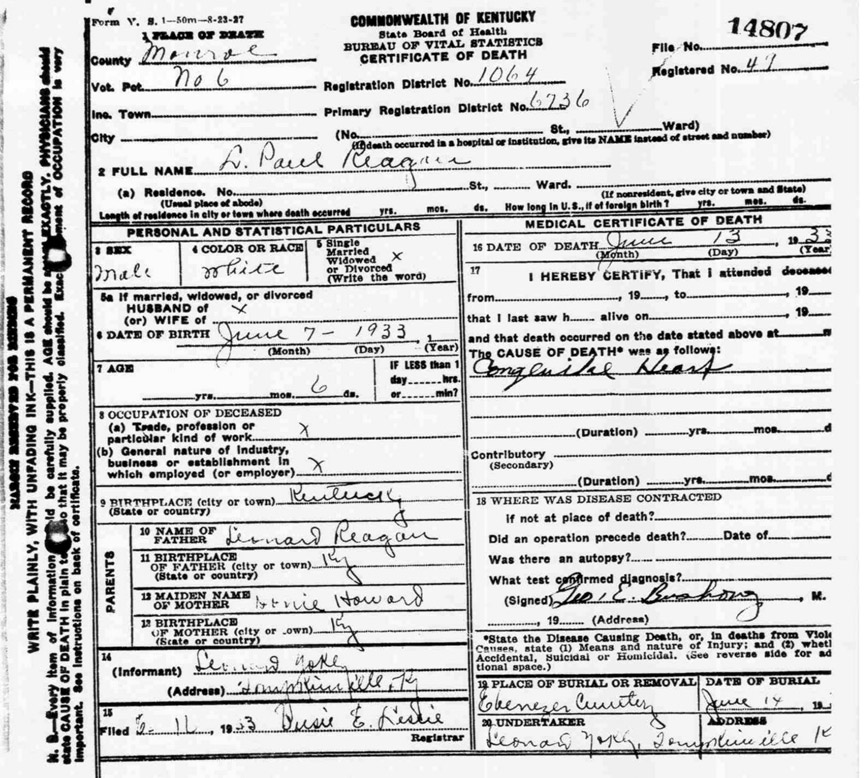 Form V. S. 1—50m—8-23-27
COMMONWEALTH OF KENTUCKY
State Board of Health
BUREAU OF VITAL STATISTICS
CERTIFICATE OF DEATH
14807
File No.
Registered No. 47
1 PLACE OF DEATH
County Monroe
Vot. Pct. No 6
Registration District No. 1064
Inc. Town
Primary Registration District No. 6736
City (No. St., Ward)
(If death occurred in a hospital or institution, give its NAME instead of street and number)
2 FULL NAME L. Paul Reagan
(a) Residence. No. St., Ward.
(Usual place of abode) (If nonresident, give city or town and State)
Length of residence in city or town where death occurred yrs. mos. ds. How long in U.S., if of foreign birth? yrs. mos. ds.
PERSONAL AND STATISTICAL PARTICULARS
3 SEX
Male
4 COLOR OR RACE
White
5 Single
Married
Widowed X
or Divorced
(Write the word)
5a If married, widowed, or divorced
HUSBAND of X
(or) WIFE of
6 DATE OF BIRTH June 7 - 1933
(Month) (Day) (Year)
7 AGE
yrs. mos. 6 ds.
IF LESS than 1
day hrs.
or min?
8 OCCUPATION OF DECEASED
(a) Trade, profession or
particular kind of work X
(b) General nature of Industry,
business or establishment in
which employed (or employer) X
9 BIRTHPLACE (city or town) Kentucky
(State or country)
PARENTS
10 NAME OF
FATHER Leonard Reagan
11 BIRTHPLACE
OF FATHER (city or town) Ky
(State or country)
12 MAIDEN NAME
OF MOTHER Howard
13 BIRTHPLACE
OF MOTHER (city or town) Ky
(State or country)
14
(Informant) Leonard Yokly
(Address) Tompkinsville, Ky
15
Filed 1933 Susie E. Leslie
Registrar
MEDICAL CERTIFICATE OF DEATH
16 DATE OF DEATH June 13, 193
(Month) (Day) (Year
17
I HEREBY CERTIFY, That I attended deceased
from , 19 , to , 19
that I last saw h alive on , 19
and that death occurred on the date stated above at m
The CAUSE OF DEATH* was as follows:
Congenital Heart
(Duration) yrs. mos. d
Contributory
(Secondary)
(Duration) yrs. mos. d
18 WHERE WAS DISEASE CONTRACTED
if not at place of death?
Did an operation precede death? Date of
Was there an autopsy?
What test confirmed diagnosis?
(Signed) Geo. E. Bushong, M.
, 19 (Address)
*State the Disease Causing Death, or, in deaths from Viole
Causes, state (1) Means and nature of Injury; and (2) wheth
Accidental, Suicidal or Homicidal. (See reverse side for ad
tional space.)
19 PLACE OF BURIAL OR REMOVAL
Ebenezer Cemetery
DATE OF BURIAL
June 14, 19
20 UNDERTAKER
Leonard Yokly,
ADDRESS
Tompkinsville K
MARGIN RESERVED FOR BINDING
WRITE PLAINLY, WITH UNFADING INK—THIS IS A PERMANENT RECORD
N. B.—Every item of information should be carefully supplied. AGE should be EXACTLY. PHYSICIANS should
state CAUSE OF DEATH in plain so that it may be properly classified. Exact of OCCUPATION is very
important. See instructions on back of certificate.